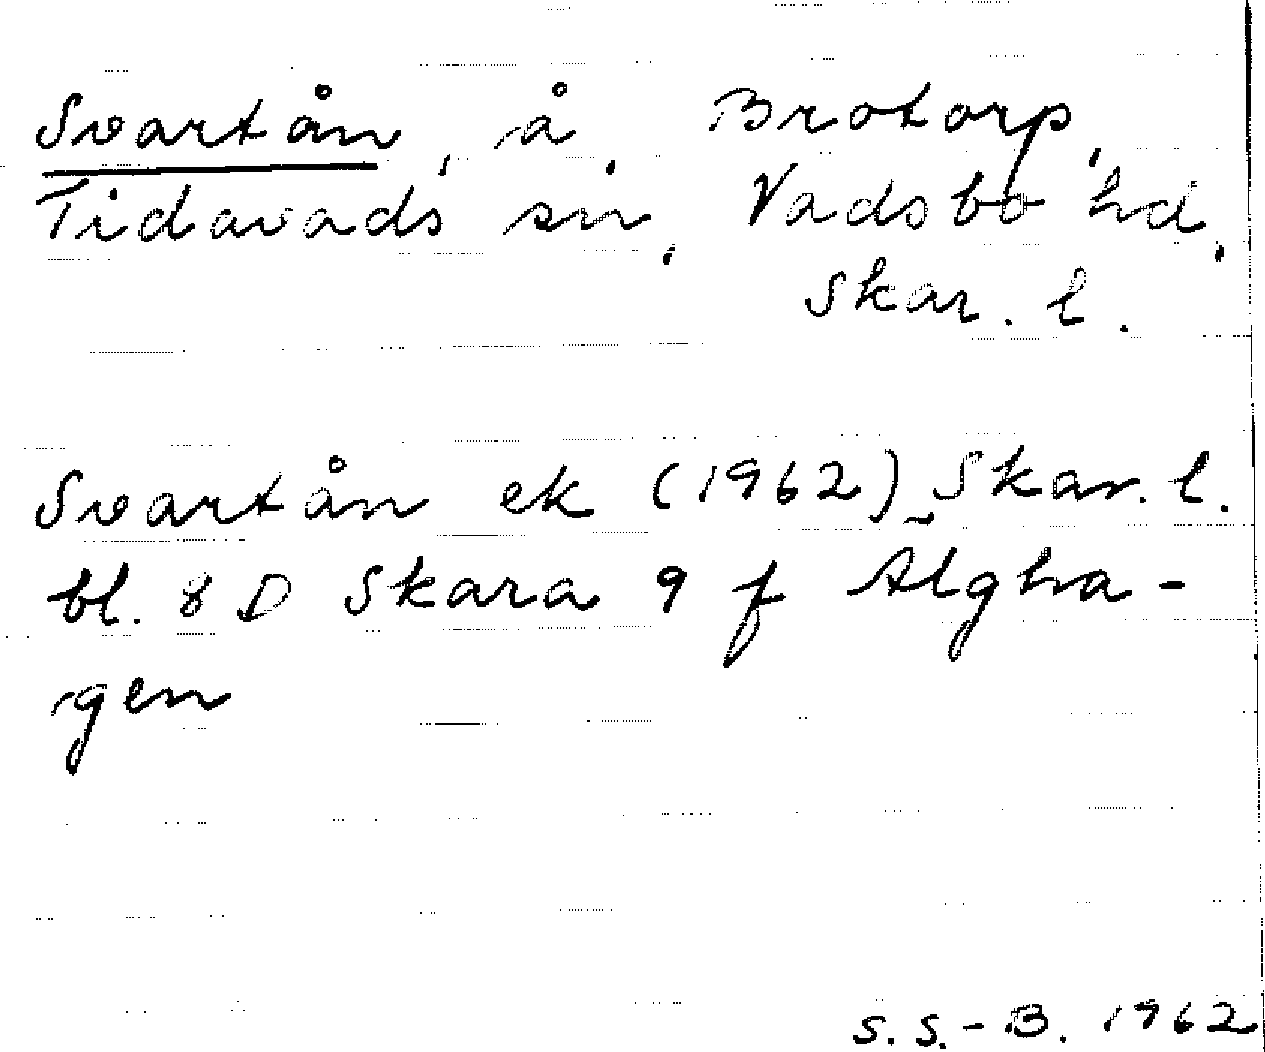 Svartån, å, Brotorp,
Tidavads sn, Vadsbo hd,
Skar. l.
Svartån ek (1962) Skar. l.
bl. 8 D Skara 9 f Algha-
gen
S. S.-B. 1962